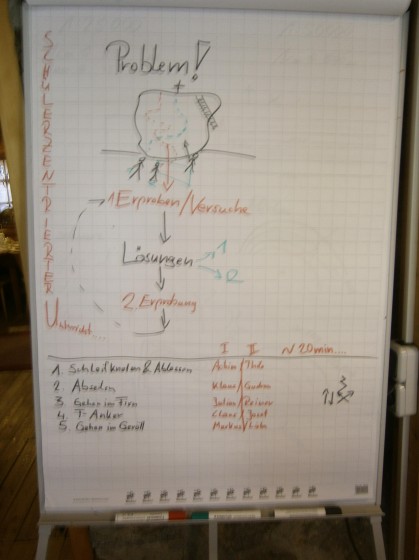 SCHÜLERZENTRIERTER
Unterricht...
Problem!
1. Erproben/Versuche
Lösungen
1
2
2. Erprobung
I II ~ 20 min....
1. Schleifknoten & Ablassen Achim/Thilo
2. Abseilen Klaus/Gudrun
3. Gehen im Firn Julian/Reiner
4. T-Anker Claus/Josef
5. Gehen im Geröll Markus/